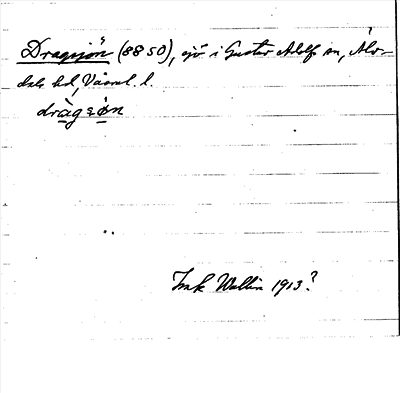 Dragsjön (8850), sjö i Gustav Adolfs sn, Älv-
dals hd, Värml. l.
dràgsø̀n
Wallin 1913?